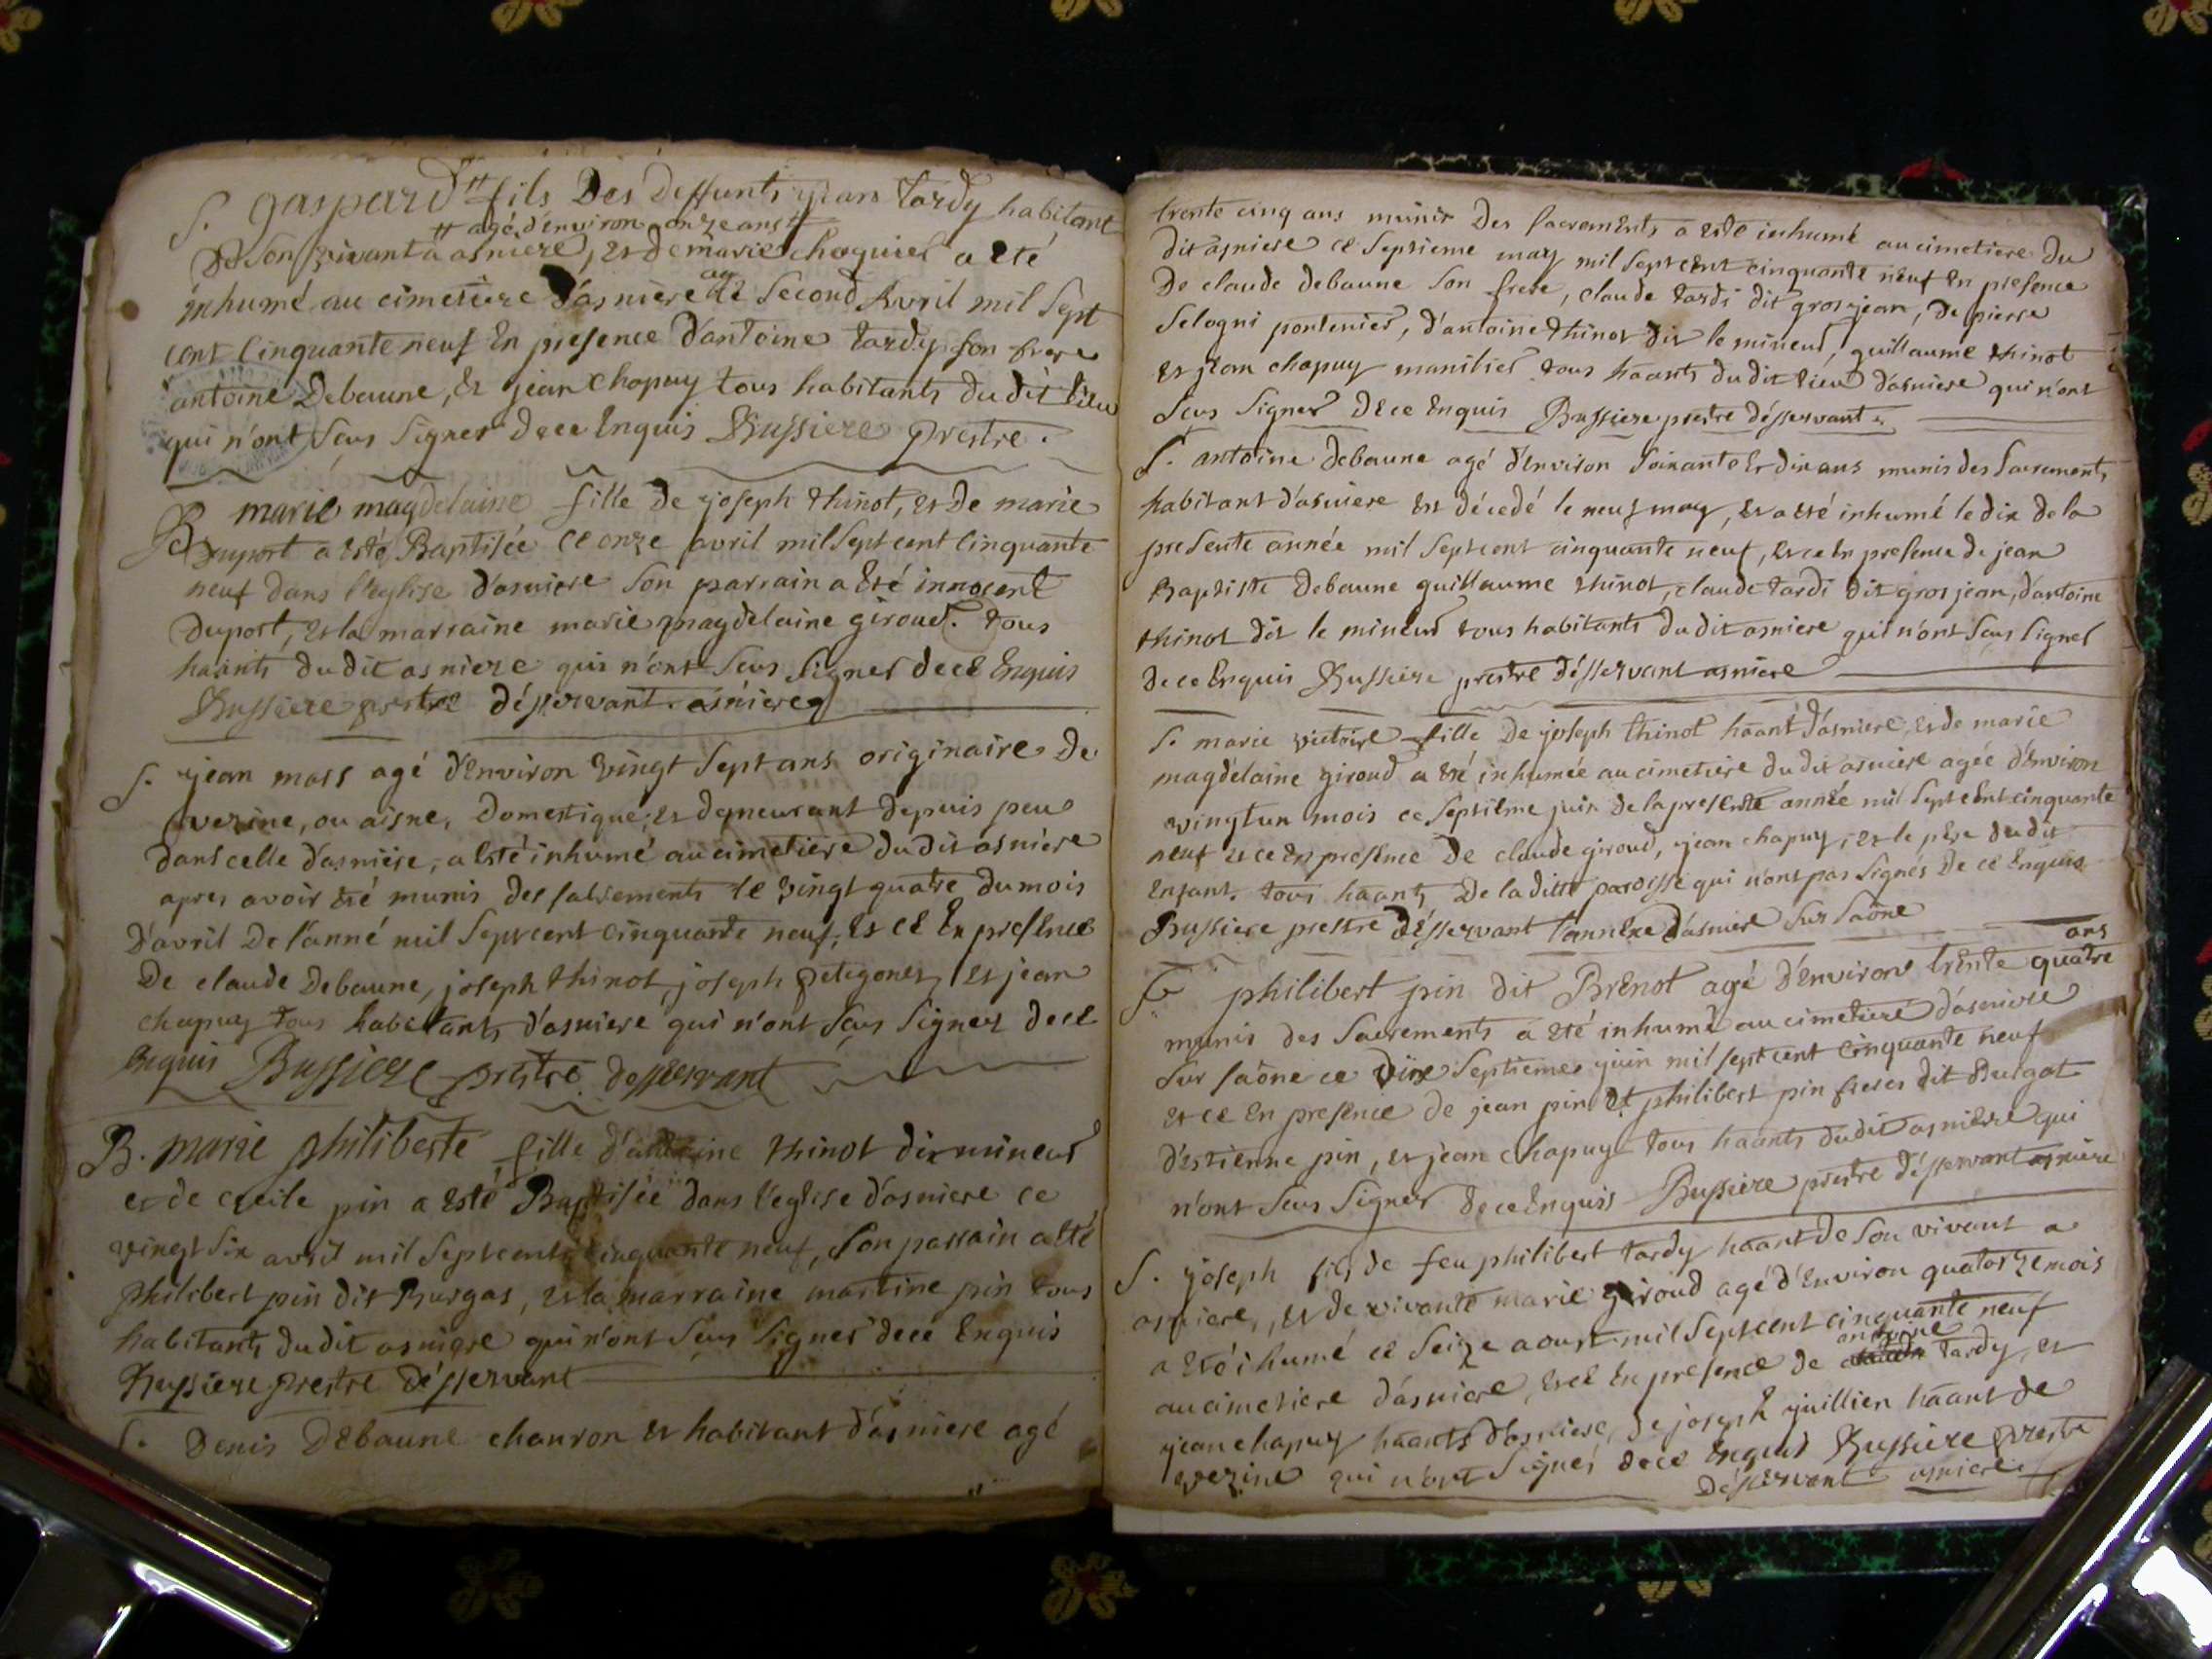 S. gaspard # fils Des Deffunts jean tardy habitant
# agé d'environ onze ans #
De Son vivant a asniere, et de marie choquier a eté
inhumé au cimetiere d'asniere ce Second Avril mil Sept
cent Cinquante neuf En presence D'antoine tardy son frere
antoine Debaune, Et jean Chapuy tous habitants du dit Lieu
qui n'ont Scus Signer de ce Enquis Bussiere Prestre.
B marie magdelaine fille de joseph thinot, et De marie
Duport a Esté Baptisée ce onze avril mil Sept cent Cinquante
neuf dans l'eglise d'asniere Son parrain a Eté innocent
Duport, et la marraine marie magdelaine giroud. tous
haants du dit asniere qui n'ont Scus Signer de ce Enquis
Bussiere prestre désservant asniere
S. jean mass agé d'Environ Vingt Sept ans originaire De
Verine, ou aisne, Domestique, et demeurant depuis peu
dans celle d'asniere, a Esté inhumé au cimetiere du dit asniere
apres avoir Eté munis des sacrements le Vingt quatre du mois
D'avril De l'anné mil Sept cent cinquante neuf, Et ce En presence
De claude Debaune, joseph thinot, joseph petigonet, et jean
chapuy tous habitants d'asniere qui n'ont Scus Signer de ce
Enquis Bussiere prestre desservant
B. marie philiberte fille d'antoine thinot dit mineur
et de cecile pin a Esté Baptisée dans l'eglise d'asniere ce
vingt Six avril mil Sept cents cinquante neuf, Son parrain a eté
philibert pin dit Burgas, et la marraine martine pin tous
habitants du dit asniere qui n'ont Scus Signer de ce Enquis
Bussiere prestre désservant
S. Denis Debaune charron et habitant d'asniere agé
trente cinq ans munis Des Sacrements a Esté inhumé au cimetiere Du
dit asniere ce Septieme may mil Sept cent cinquante neuf En presence
De claude debaune Son frere, claude tardi dit gros jean, De pierre
Selogni pontenier, d'antoine thinot dit le mineur, guillaume thinot
Et jean chapuy manilier tous haants du dit Lieu d'asniere qui n'ont
Scus Signer De ce Enquis Bussiere prestre désservant
S. antoine Debaune agé d'Environ Soixante Et dix ans munis des Sacrements
habitant d'asniere Est décedé le neuf may, Et a Esté inhumé le dix de la
presente année mil Sept cent cinquante neuf, Et ce En presence de jean
Baptiste Debaune guillaume thinot, claude tardi dit gros jean, d'antoine
thinot dit le mineur tous habitants du dit asniere qui n'ont Scus Signer
de ce Enquis Bussiere prestre désservant asniere
S. marie victoire fille De joseph thinot haant d'asniere, Et de marie
magdelaine giroud a Eté inhumée au cimetiere du dit asniere agée d'Environ
vingt un mois ce Septieme juin de la presente année mil Sept cent cinquante
neuf et ce En presence De claude giroud, jean chapuy, et le pere du dit
Enfant. tous haants De la ditte paroisse qui n'ont pas Signés De ce Enquis
Bussiere prestre Désservant l'annexe d'asniere Sur Saône
ans
S philibert pin dit Brenot agé d'Environ trente quatre
munis des Sacrements a eté inhumé au cimetiere d'asniere
Sur Saône ce Dixe Septieme juin mil sept cent cinquante neuf
et ce En presence de jean pin Et philibert pin freres dit Burgat
d'estienne pin, et jean chapuy tous haants du dit asniere qui
n'ont Scus Signer de ce Enquis Bussiere prestre désservant asniere
S. joseph fils de feu philibert tardy haant de Son vivant a
asniere, et de vivante marie giroud agé d'Environ quatorze mois
a Eté ihumé ce Seize aoust mil Sept cent cinquante neuf
antoine
au cimetiere d'asniere, Et ce En presence de tardy, et
jean chapuy haants d'asniere, de joseph guillien haant de
Vezine qui n'ont Signés de ce Enquis Bussiere prestre
Désservant asniere